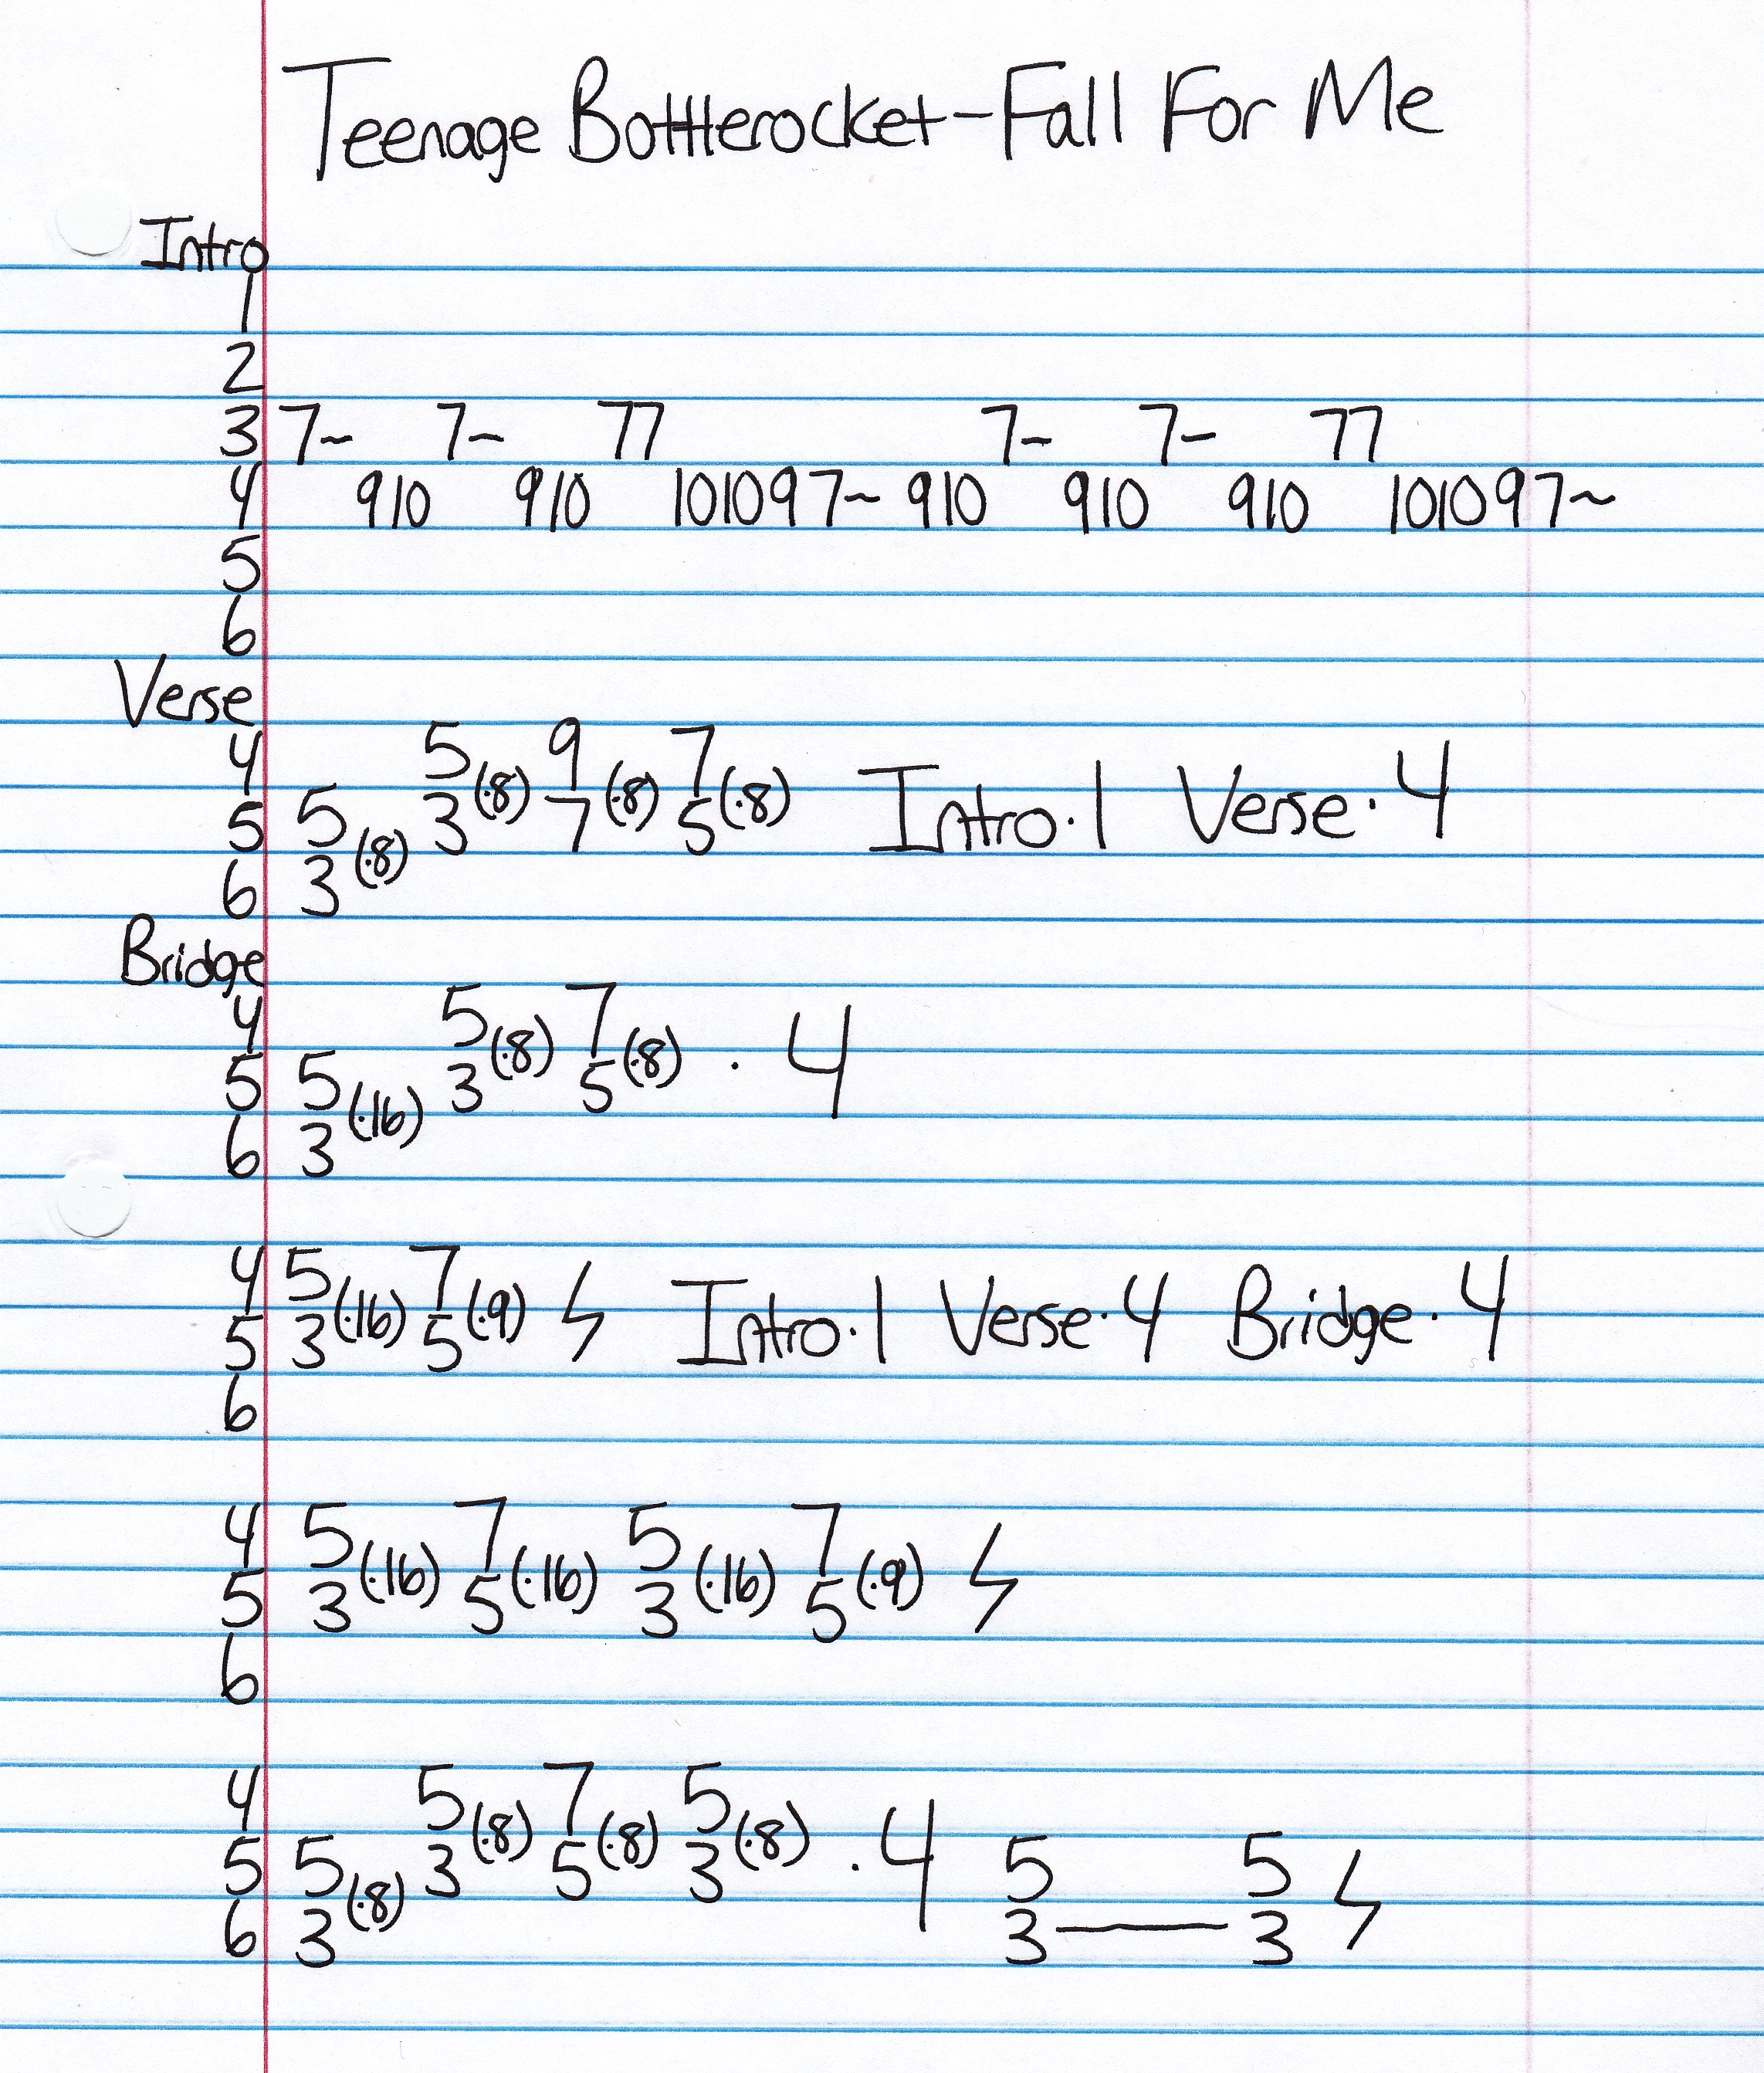 Teenage Bottlerocket-Fall For Me
Intro
1
2
3 7~ 7~ 77 7~ 7~ 77
4 910 910 101097~ 910 910 910 101097~
5
6
Verse
4 5 9 7
5 5 3(·8) 7(·8) 5(·8) Intro·1 Verse·4
6 3(·8)
Bridge
4 5 7
5 5 3(·8) 5(·8) · 4
6 3(·16)
4 5 7
5 3(·16) 5(·9) Intro·1 Verse·4 Bridge·4
6
4 5 7 5 7
5 3(·16) 5(·16) 3(·16) 5(·9)
6
4 5 7 5
5 5 3(·8) 5(·8) 3(·8) ·4 5 5
6 3(·8) 3——3